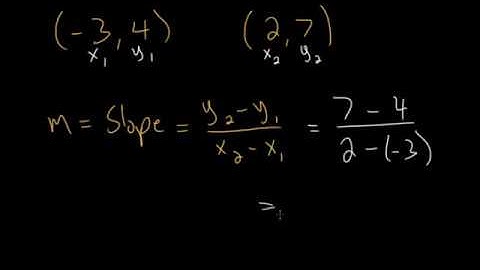 (-3, 4) (2, 7)
x₁ y₁ x₂ y₂
m = Slope = y₂ - y₁ / x₂ - x₁ = 7 - 4 / 2 - (-3)
=